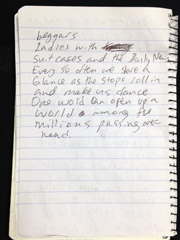 beggars
Ladies with
Suitcases and the Daily News
Every so often we share a
Glance as the stops roll in
and make us dance
One word can open up a
World among the
millions passing over-
head.